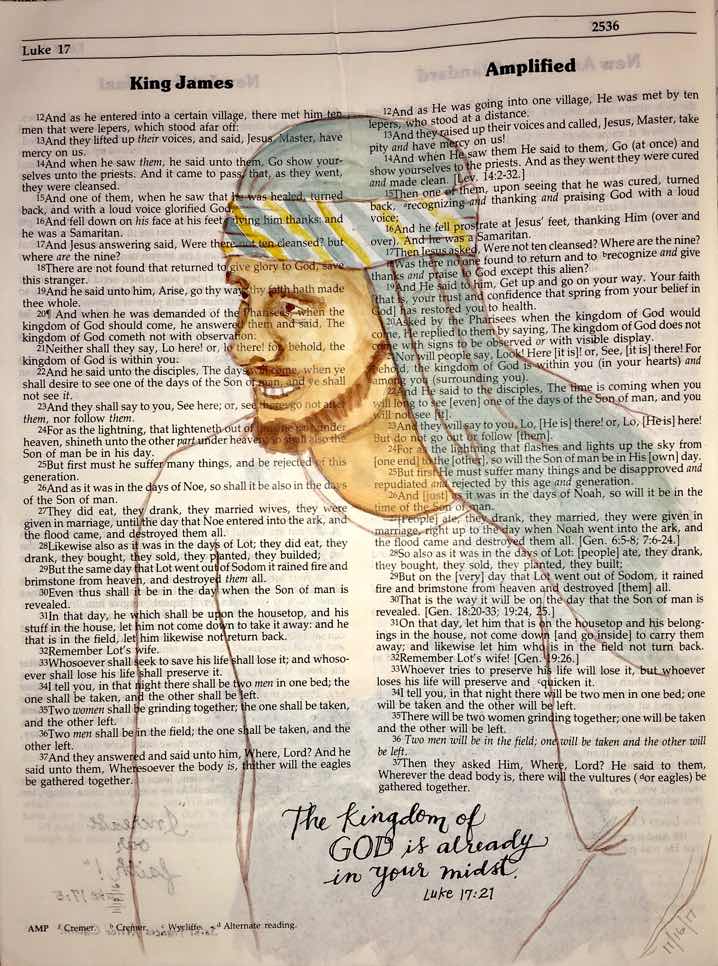 2536
Luke 17
King James
12And as he entered into a certain village, there met him ten
men that were lepers, which stood afar off:
13And they lifted up their voices, and said, Jesus, Master, have
mercy on us.
14And when he saw them, he said unto them, Go show your-
selves unto the priests. And it came to pass, that, as they went,
they were cleansed.
15And one of them, when he saw that he was healed, turned
back, and with a loud voice glorified God,
16And fell down on his face at his feet, giving him thanks: and
he was a Samaritan.
17And Jesus answering said, Were there not ten cleansed? but
where are the nine?
18There are not found that returned to give glory to God, save
this stranger.
19And he said unto him, Arise, go thy way: thy faith hath made
thee whole.
20¶ And when he was demanded of the Pharisees, when the
kingdom of God should come, he answered them and said, The
kingdom of God cometh not with observation:
21Neither shall they say, Lo here! or, lo there! for, behold, the
kingdom of God is within you.
22And he said unto the disciples, The days will come, when ye
shall desire to see one of the days of the Son of man, and ye shall
not see it.
23And they shall say to you, See here; or, see there: go not after
them, nor follow them.
24For as the lightning, that lighteneth out of the one part under
heaven, shineth unto the other part under heaven; so shall also the
Son of man be in his day.
25But first must he suffer many things, and be rejected of this
generation.
26And as it was in the days of Noe, so shall it be also in the days
of the Son of man.
27They did eat, they drank, they married wives, they were
given in marriage, until the day that Noe entered into the ark, and
the flood came, and destroyed them all.
28Likewise also as it was in the days of Lot; they did eat, they
drank, they bought, they sold, they planted, they builded;
29But the same day that Lot went out of Sodom it rained fire and
brimstone from heaven, and destroyed them all.
30Even thus shall it be in the day when the Son of man is
revealed.
31In that day, he which shall be upon the housetop, and his
stuff in the house, let him not come down to take it away: and he
that is in the field, let him likewise not return back.
32Remember Lot's wife.
33Whosoever shall seek to save his life shall lose it; and whoso-
ever shall lose his life shall preserve it.
34I tell you, in that night there shall be two men in one bed; the
one shall be taken, and the other shall be left.
35Two women shall be grinding together; the one shall be taken,
and the other left.
36Two men shall be in the field; the one shall be taken, and the
other left.
37And they answered and said unto him, Where, Lord? And he
said unto them, Wheresoever the body is, thither will the eagles
be gathered together.
Amplified
12And as He was going into one village, He was met by ten
lepers, who stood at a distance.
13And they raised up their voices and called, Jesus, Master, take
pity and have mercy on us!
14And when He saw them He said to them, Go (at once) and
show yourselves to the priests. And as they went they were cured
and made clean. [Lev. 14:2-32.]
15Then one of them, upon seeing that he was cured, turned
back, recognizing and thanking and praising God with a loud
voice;
16And he fell prostrate at Jesus' feet, thanking Him (over and
over). And he was a Samaritan.
17Then Jesus asked, Were not ten cleansed? Where are the nine?
18Was there no one found to return and to brecognize and give
thanks and praise to God except this alien?
19And He said to him, Get up and go on your way. Your faith
that is, your trust and confidence that spring from your belief in
God] has restored you to health.
20Asked by the Pharisees when the kingdom of God would
come, He replied to them by saying, The kingdom of God does not
come with signs to be observed or with visible display.
21Nor will people say, Look Here [it is]! or, See, [it is] there! For
behold, the kingdom of God is within you (in your hearts) and
among you (surrounding you).
22And He said to the disciples, The time is coming when you
will long to see [even] one of the days of the Son of man, and you
will not see [it].
23And they will say to you, Lo, [He is] there! or, Lo, [He is] here!
But do not go out or follow [them].
24For as the lightning that flashes and lights up the sky from
[one end] to the [other], so will the Son of man be in His [own] day.
25But first He must suffer many things and be disapproved and
repudiated and rejected by this age and generation.
26And [just] as it was in the days of Noah, so will it be in the
time of the Son of man.
27[People] ate, they drank, they married, they were given in
marriage, right up to the day when Noah went into the ark, and
the flood came and destroyed them all. [Gen. 6:5-8; 7:6-24.]
28So also as it was in the days of Lot: [people] ate, they drank,
they bought, they sold, they planted, they built;
29But on the [very] day that Lot went out of Sodom, it rained
fire and brimstone from heaven and destroyed [them] all.
30That is the way it will be on the day that the Son of man is
revealed. [Gen. 18:20-33; 19:24, 25.]
31On that day, let him that is on the housetop and his belong-
ings in the house, not come down [and go inside] to carry them
away; and likewise let him who is in the field not turn back.
32Remember Lot's wife! [Gen. 19:26.]
33Whoever tries to preserve his life will lose it, but whoever
loses his life will preserve and cquicken it.
34I tell you, in that night there will be two men in one bed; one
will be taken and the other will be left.
35There will be two women grinding together; one will be taken
and the other will be left.
36 Two men will be in the field; one will be taken and the other will
be left.
37Then they asked Him, Where, Lord? He said to them,
Wherever the dead body is, there will the vultures (dor eagles) be
gathered together.
The kingdom of
GOD is already
in your midst.
Luke 17:21
11/16/17
AMP a Cremer. b Cremer. c Wycliffe. d Alternate reading.